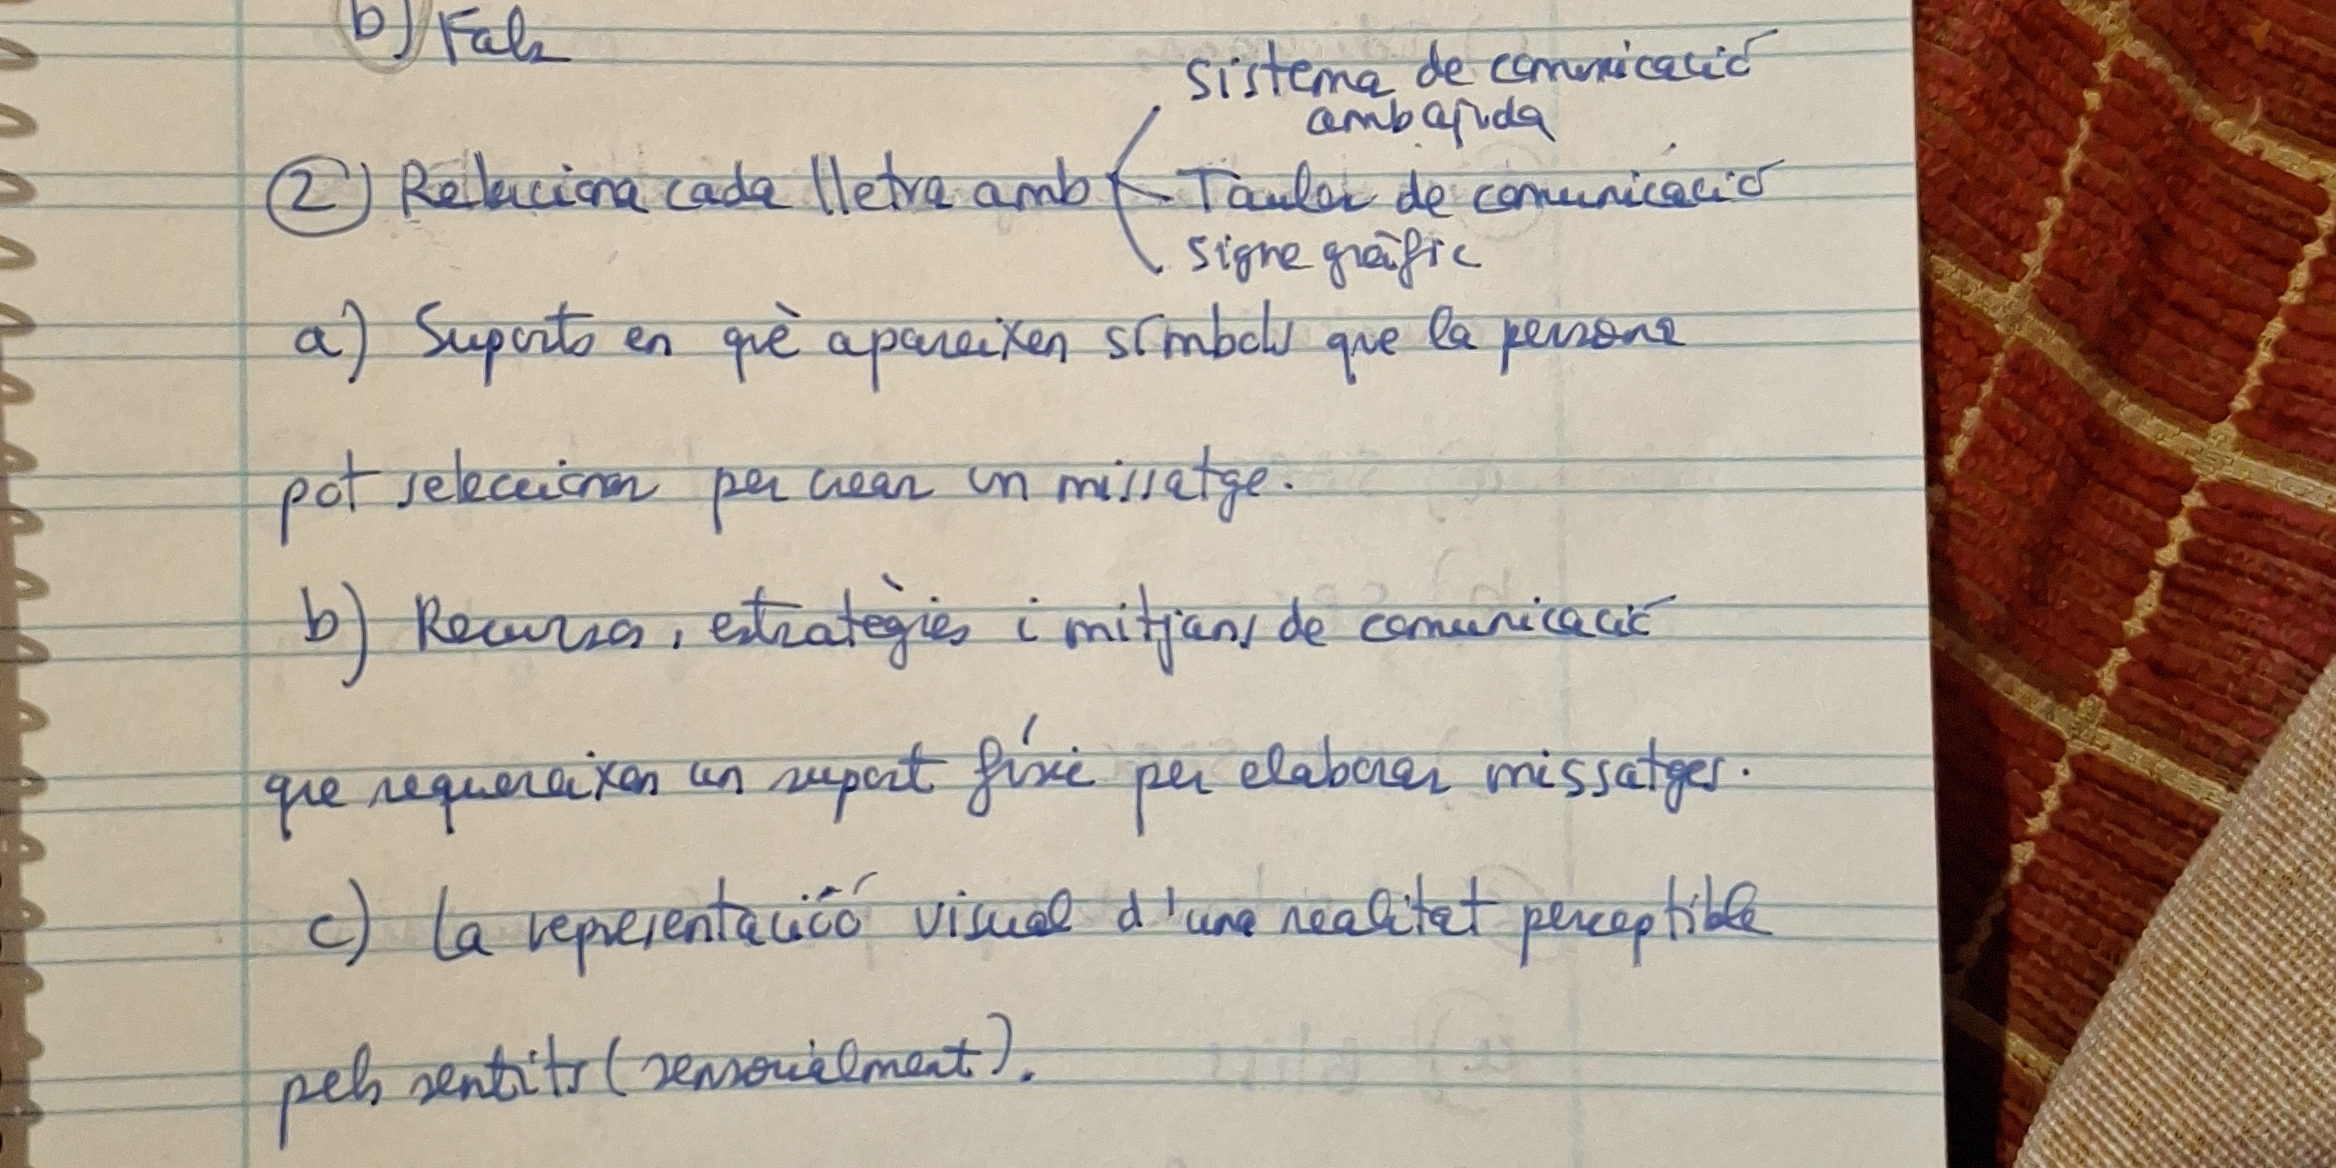 b) Fals
sistema de comunicació
amb ajuda
2) Relaciona cada lletra amb Tauler de comunicació
signe gràfic
a) Suports en què apareixen símbols que la persona
pot seleccionar per crear un missatge.
b) Recursos, estratègies i mitjans de comunicació
que requereixen un suport físic per elaborar missatges.
c) La representació visual d'una realitat perceptible
pels sentits (sensorialment).